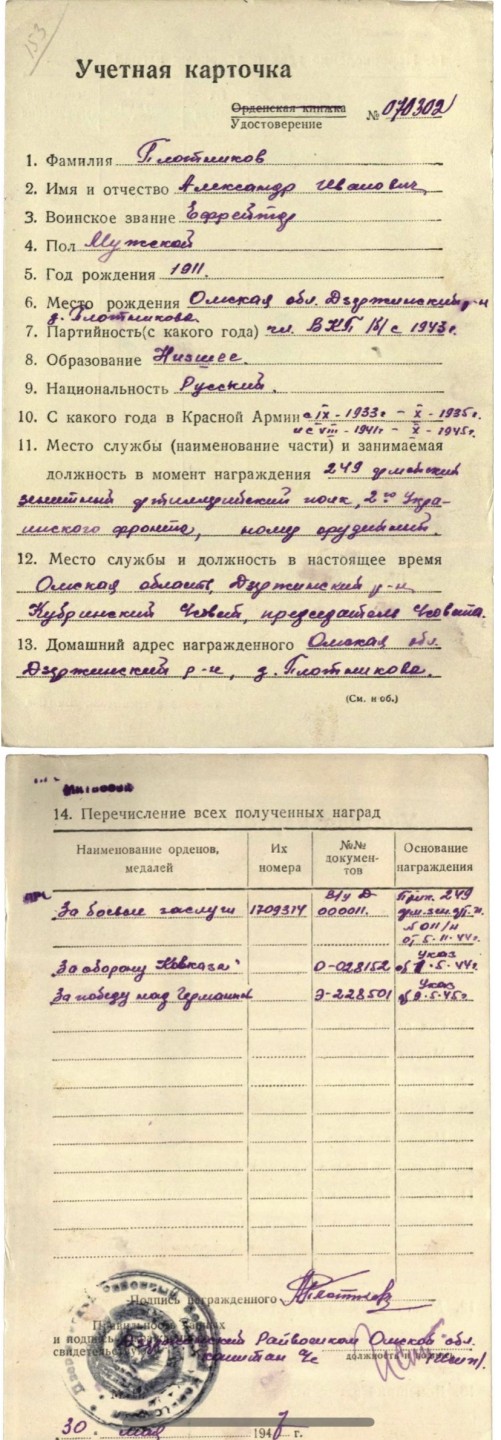 153
Учетная карточка
Орденская книжка
Удостоверение
№ 070302
1. Фамилия Плотников
2. Имя и отчество Александр Иванович
3. Воинское звание Ефрейтор
4. Пол Мужской
5. Год рождения 1911.
6. Место рождения Омская обл. Дзержинский р-н
д. Плотникова.
7. Партийность(с какого года) чл. ВКП/б/ с 1943г.
8. Образование Низшее.
9. Национальность Русский.
10. С какого года в Красной Армии с IX-1933г - X-1935г.
и с VIII-1941г - X-1945г.
11. Место службы (наименование части) и занимаемая
должность в момент награждения 249 армейский
зенитный артиллерийский полк, 2го Укра-
инского фронта, номер орудийный.
12. Место службы и должность в настоящее время
Омская область, Дзержинский р-н,
Кубринский Совет, председатель Совета.
13. Домашний адрес награжденного Омская обл.
Дзержинский р-н, д. Плотникова.
(См. н об.)
14. Перечисление всех полученных наград
Наименование орденов, медалей
Их номера
№№ документов
Основание награждения
За боевые заслуги 1709314 В/у Д-000011. Прик. 249
арм. зен. ар. п.
№ 011/н
от 5.11.44г.
За оборону Кавказа" О-028152 Указ
от 1.5.44г.
За победу над Германией Э-228501 Указ
от 9.5.45г.
Подпись награжденного
Правильность данных
и подпись
свидетельствую
Райвоенком Омской обл.
капитан
должность и подпись
30 мая 1947 г.